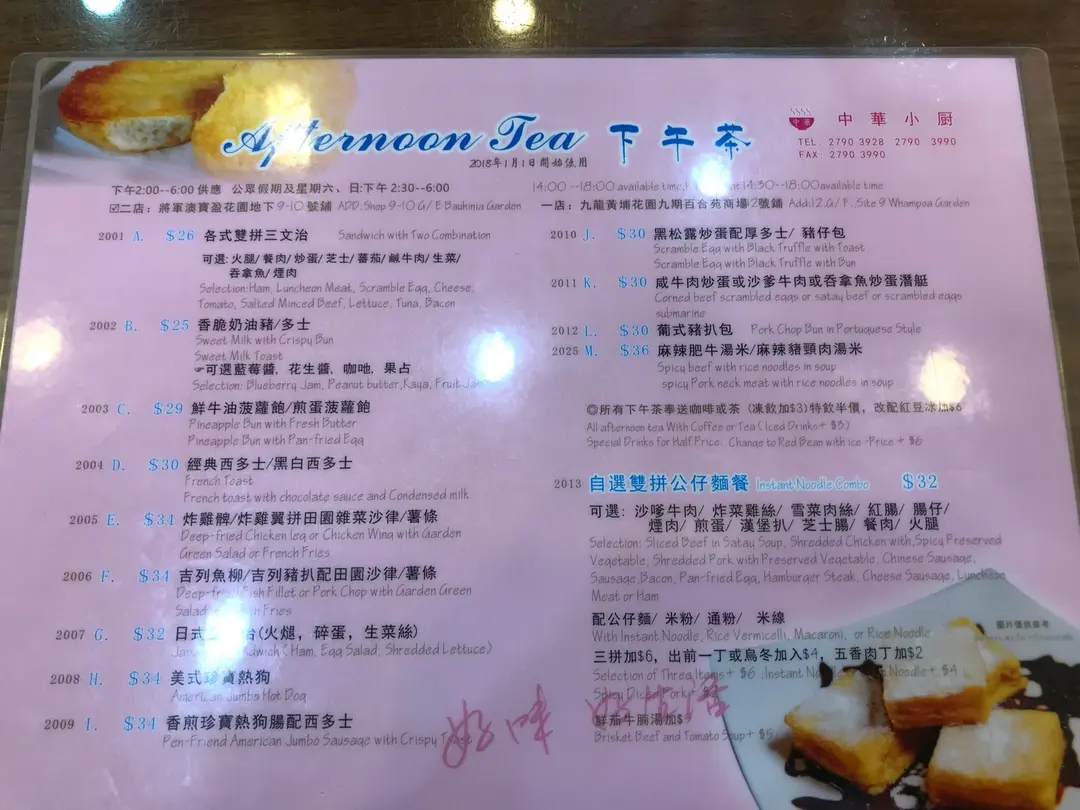 Afternoon Tea 下午茶
2018年1月1日開始使用
中華
中華小厨
TEL: 2790 3928 2790 3990
FAX: 2790 3990
下午2:00--6:00 供應 公眾假期及星期六、日:下午 2:30--6:00
14:00--18:00 available time, at 14:30--18:00 available time
☑二店：將軍澳寶盈花園地下9-10號鋪 ADD:Shop 9-10 G/F Bauhinia Garden
一店：九龍黃埔花園九期百合苑商場12號鋪 Add:12.G/F., Site 9 Whampoa Garden
2001 A. $26 各式雙拼三文治 Sandwich with Two Combination
可選:火腿/餐肉/炒蛋/芝士/蕃茄/鹹牛肉/生菜/
吞拿魚/煙肉
Selection:Ham, Luncheon Meat, Scramble Egg, Cheese,
Tomato, Salted Minced Beef, Lettuce, Tuna, Bacon
2002 B. $25 香脆奶油豬/多士
Sweet Milk with Crispy Bun
Sweet Milk Toast
☞可選藍莓醬, 花生醬, 咖吔, 果占
Selection: Blueberry Jam, Peanut butter, Kaya, Fruit Jam
2003 C. $29 鮮牛油菠蘿飽/煎蛋菠蘿飽
Pineapple Bun with Fresh Butter
Pineapple Bun with Pan-fried Egg
2004 D. $30 經典西多士/黑白西多士
French Toast
French toast with chocolate sauce and Condensed milk
2005 E. $34 炸雞髀/炸雞翼拼田園雜菜沙律/薯條
Deep-fried Chicken leg or Chicken Wing with Garden
Green Salad or French Fries
2006 F. $34 吉列魚柳/吉列豬扒配田園沙律/薯條
Deep-fried Fish Fillet or Pork Chop with Garden Green
Salad French Fries
2007 G. $32 日式三文治(火腿, 碎蛋, 生菜絲)
Sandwich (Ham, Egg Salad, Shredded Lettuce)
2008 H. $34 美式珍寶熱狗
American Jumbo Hot Dog
2009 I. $34 香煎珍寶熱狗腸配西多士
Pen-Friend American Jumbo Sausage with Crispy Toast
2010 J. $30 黑松露炒蛋配厚多士/豬仔包
Scramble Egg with Black Truffle with Toast
Scramble Egg with Black Truffle with Bun
2011 K. $30 咸牛肉炒蛋或沙爹牛肉或吞拿魚炒蛋潛艇
Corned beef scrambled eggs or satay beef or scrambled eggs
submarine
2012 L. $30 葡式豬扒包 Pork Chop Bun in Portuguese Style
2025 M. $36 麻辣肥牛湯米/麻辣豬頸肉湯米
Spicy beef with rice noodles in soup
spicy Pork neck meat with rice noodles in soup
◎所有下午茶奉送咖啡或茶 (凍飲加$3)特飲半價, 改配紅豆冰加$6
All afternoon tea With Coffee or Tea ( Iced Drinks+ $3)
Special Drinks for Half Price. Change to Red Bean with ice -Price + $6
2013 自選雙拼公仔麵餐 Instant Noodle Combo $32
可選: 沙嗲牛肉/ 炸菜雞絲/ 雪菜肉絲/ 紅腸/ 腸仔/
煙肉/ 煎蛋/ 漢堡扒/ 芝士腸/ 餐肉/ 火腿
Selection: Sliced Beef in Satay Soup, Shredded Chicken with,Spicy Preserved
Vegetable, Shredded Pork with Preserved Vegetable, Chinese Sausage,
Sausage,Bacon, Pan-fried Egg, Hamburger Steak, Cheese Sausage, Luncheon
Meat or Ham
配公仔麵/ 米粉/ 通粉/ 米線
With Instant Noodle, Rice Vermicelli, Macaroni, or Rice Noodle
圖片僅供參考
三拼加$6, 出前一丁或烏冬加入$4, 五香肉丁加$2
Selection of Three Items+ $6 :Instant Noodle+ $4
Spicy Diced Pork
鮮茄牛腩湯加$
Brisket Beef and Tomato Soup+ $5
好味